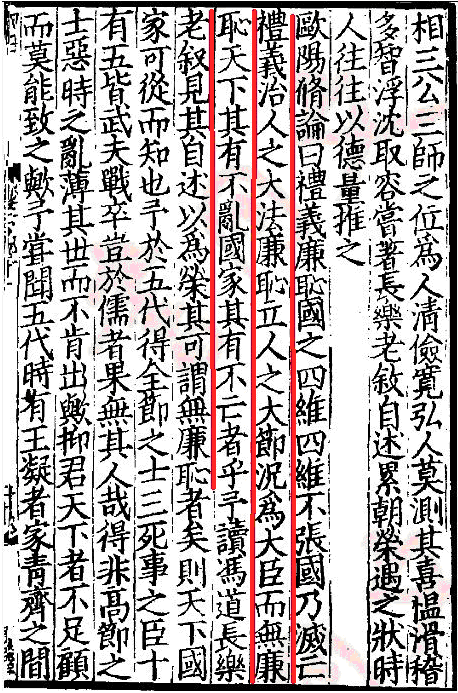 相三公三師之位為人清儉寬弘人莫測其喜愠滑稽
多智浮沈取容嘗著長樂老敘自述累朝榮遇之狀時
人往往以德量推之
歐陽脩論曰禮義廉恥國之四維四維不張國乃滅亡
禮義治人之大法廉恥立人之大節況為大臣而無廉
恥天下其有不亂國家其有不亡者乎予讀馮道長樂
老叙見其自述以為榮其可謂無廉恥者矣則天下國
家可從而知也予於五代得全節之士三死事之臣十
有五皆武夫戰卒豈於儒者果無其人哉得非高節之
士惡時之亂薄其世而不肯出歟抑君天下者不足顧
而莫能致之歟予嘗聞五代時有王凝者家青齊之間